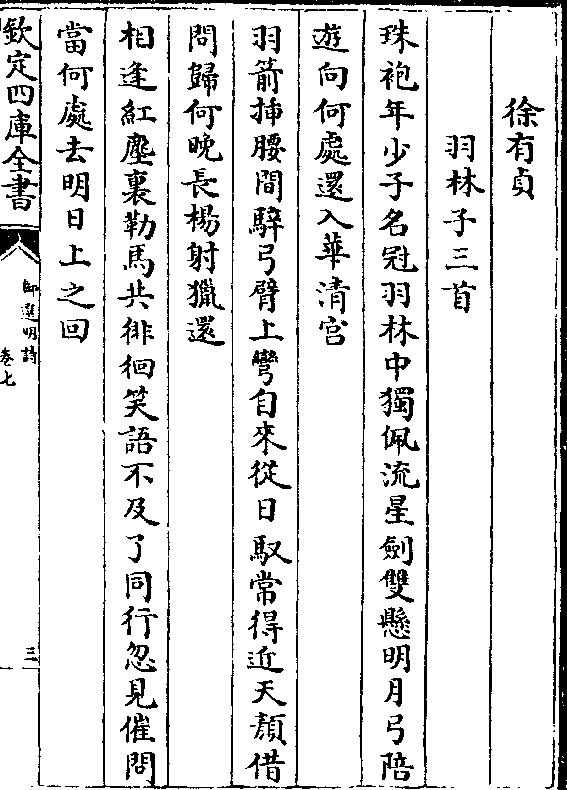 徐有貞
羽林子三首
珠袍年少子名冠羽林中獨佩流星劍雙懸明月弓陪
遊向何處還入華清宮
羽箭揷腰間騂弓臂上彎自來從日馭常得近天顏借
問歸何晚長楊射獵還
相逢紅塵裏勒馬共徘徊笑語不及了同行忽見催問
當何處去明日上之回
欽定四庫全書
御選明詩
卷七
三